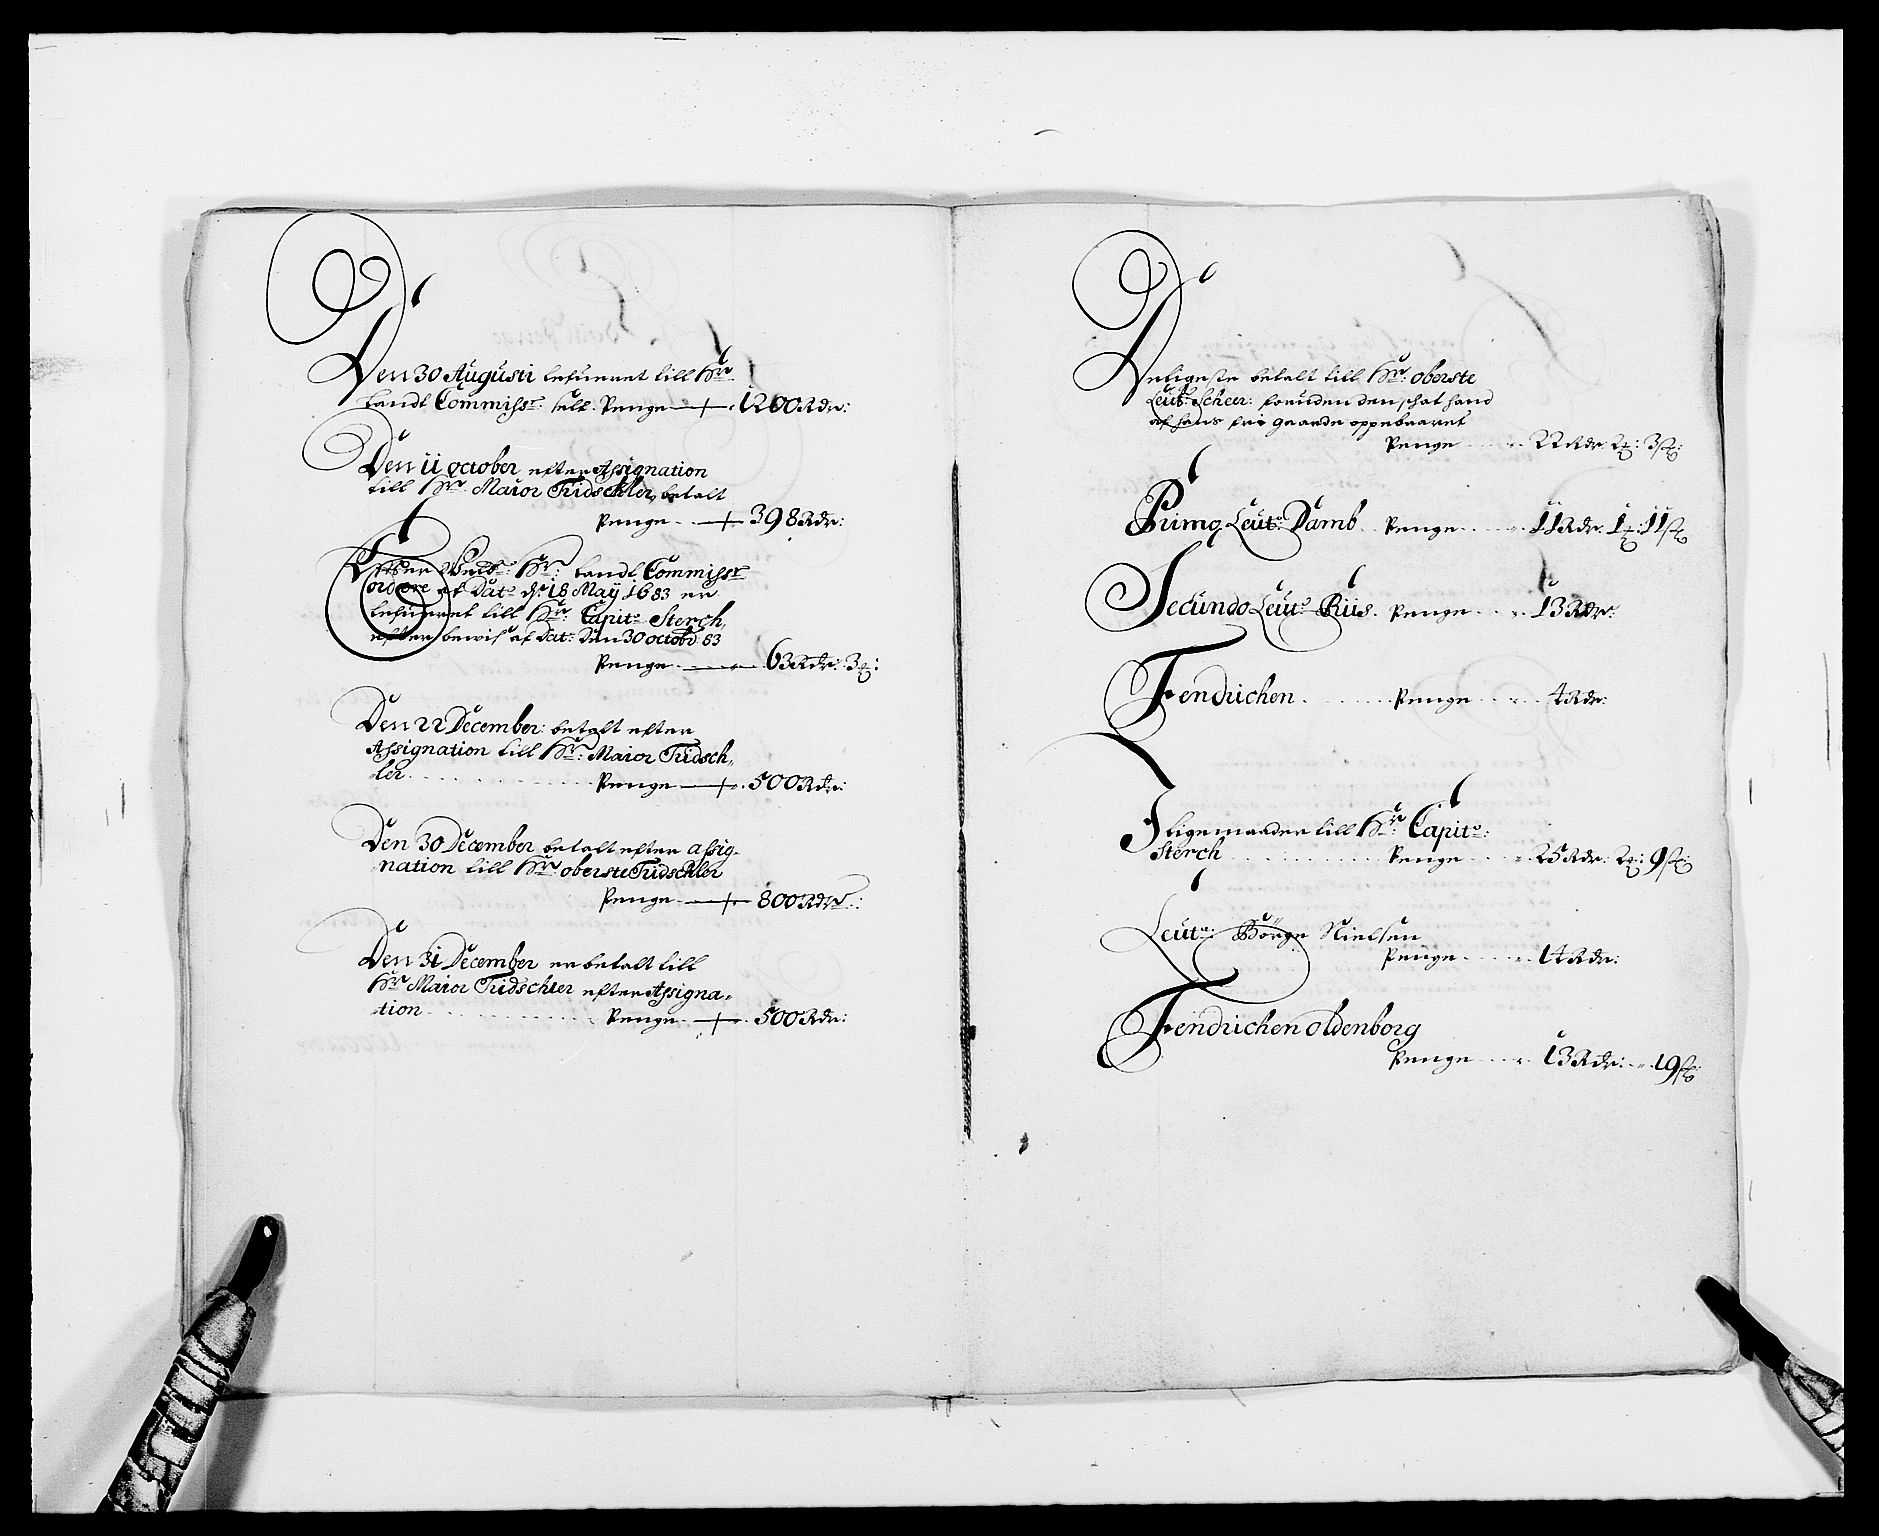 Den 30 Augusti lefueret till Hr:
Landt Commissr: sell. Penge + 1200 Rdr:
Den 11 october efter Assignation
till Hr Maior Tridschler, betalt
Penge + 398 Rdr:
Efter Hr: Landt Commissr
ordre af Dato d: 18 Maÿ 1683 er
lefueret till Hr: Capit: Sterch,
efter bewis af Dat: Den 30 octobr 83
Penge 63 Rdr: 3
Den 22 December: betalt efter
Assignation till Hr: Maior Tridsch,,
,,ler Penge + 500 Rdr:
Den 30 December betalt efter assig-
nation till Hr oberste Tridschler
Penge + 800 Rdr:
Den 31 December er betalt till
Hr Maior Tridschler efter Assigna,,
,,tion Penge + 500 Rdr:
Veligeste betalt till Hr: oberste
Leut: Scheer: foruden den schat hand
af hans fri gaarde oppebaaret
Penge 22 Rdr 2: 3
Primo Leut: Damb Penge 11 Rdr 1: 11
Secundo Leut: Riis. Penge 13 Rdr:
Fendrichen Penge 4 Rdr:
Jligemaader till Hr: Capit:
Sterch Penge 25 Rdr: 2: 9
Leut: Börge Nielsen
Penge 14 Rdr:
Fendrichen oldenborg
Penge 13 Rdr: 19